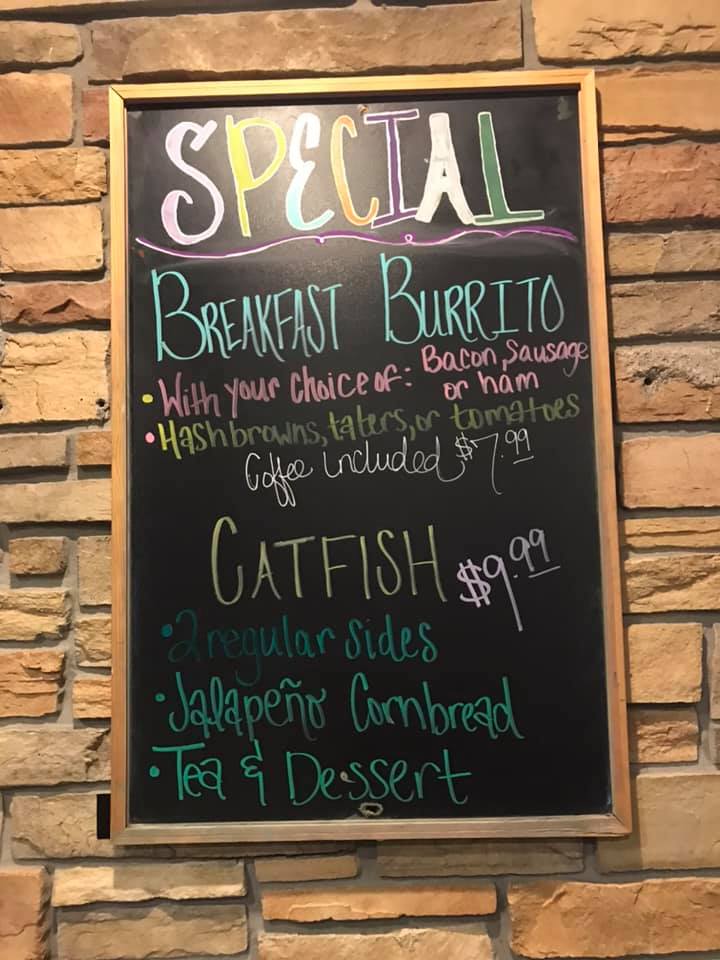 SPECIAL
BREAKFAST BURRITO
• With your choice of: Bacon, Sausage
or ham
• Hashbrowns, taters, or tomatoes
Coffee included $7.99
CATFISH $9.99
• 2 regular sides
• Jalapeño Cornbread
• Tea & Dessert